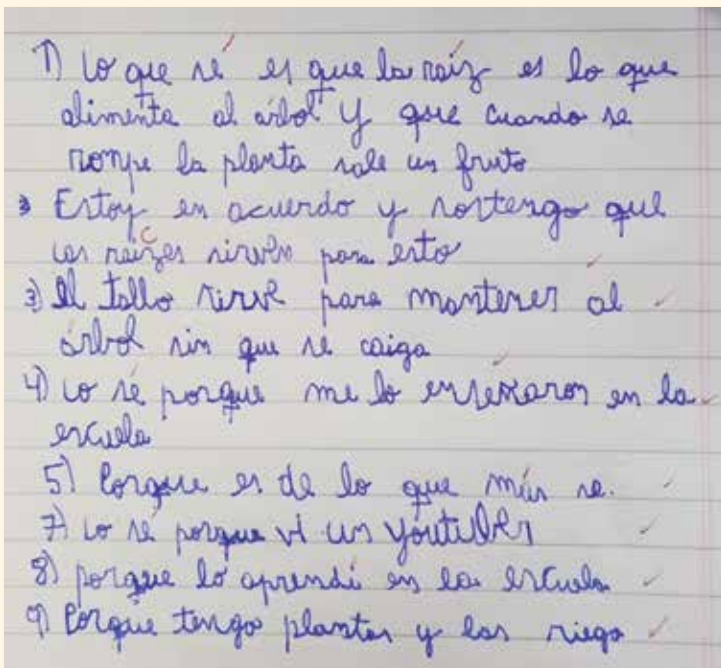 1) Lo que sé es que la raíz es lo que
alimenta al árbol y que cuando se
rompe la planta sale un fruto
Estoy en acuerdo y sostengo que
las raízes sirven para esto
3) El tallo sirve para mantener al
árbol sin que se caiga
4) Lo sé porque me lo enseñaron en la
escuela
5) Porque es de lo que más se.
7) Lo sé porque vi un youtuber
8) porque lo aprendí en la escuela
9) Porque tengo plantas y las riego